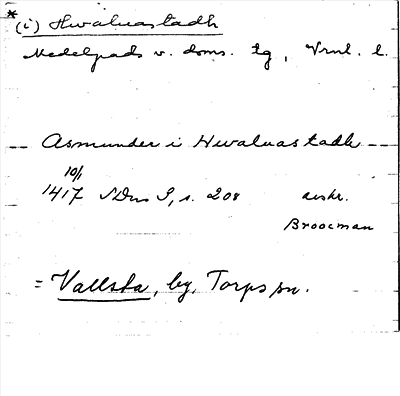 * (i) Hwaluastadh
Medelpads v. doms. tg, Vrml. l.
-- Asmunder i Hwaluastadh --
10/1
1417 SDns 3, s. 208 avskr.
Broocman
= Vallsta, by, Torps sn.